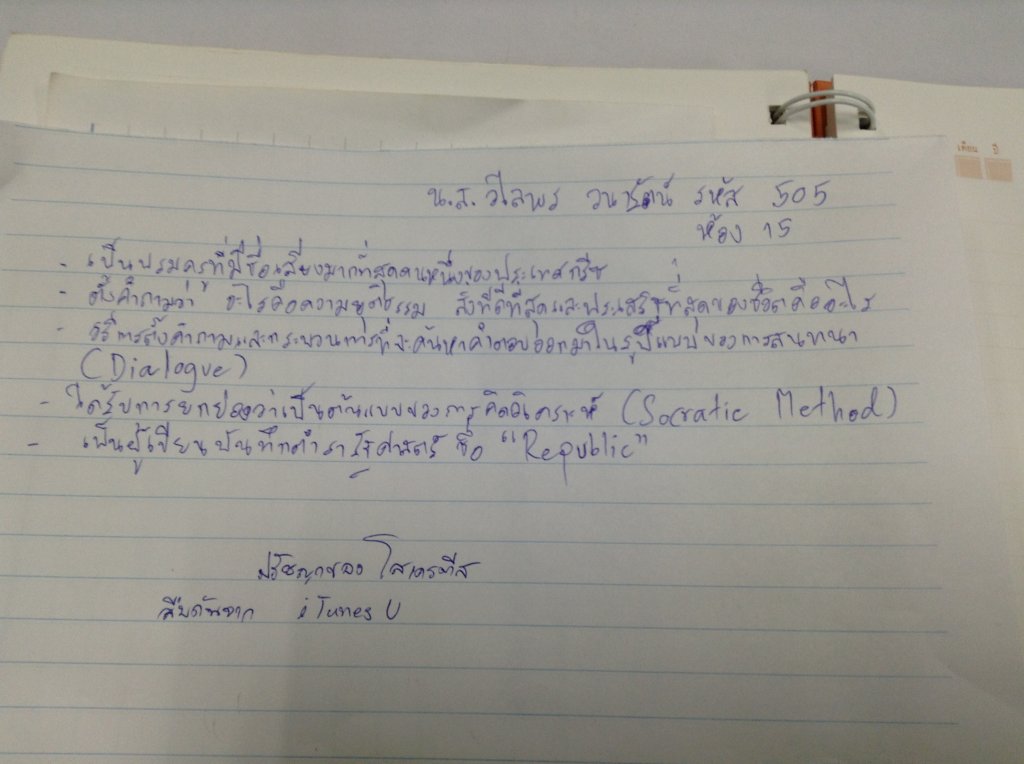 เดือน ปี
น.ส. วิไลพร วนารัตน์ รหัส 505
ห้อง 15
- เป็นบรมครูที่มีชื่อเสียงมากที่สุดคนหนึ่งของประเทศกรีซ
- ตั้งคำถามว่า อะไรคือความยุติธรรม สิ่งที่ดีที่สุดและประเสริฐที่สุดของชีวิตคืออะไร
- วิธีการตั้งคำถามและกระบวนการที่จะค้นหาคำตอบออกมาในรูปแบบของการสนทนา
(Dialogue)
- ได้รับการยกย่องว่าเป็นต้นแบบของการคิดวิเคราะห์ (Socratic Method)
- เป็นผู้เขียนบันทึกตำรารัฐศาสตร์ ชื่อ "Republic"
ปรัชญาของ โสเครตีส
สืบค้นจาก iTunes U